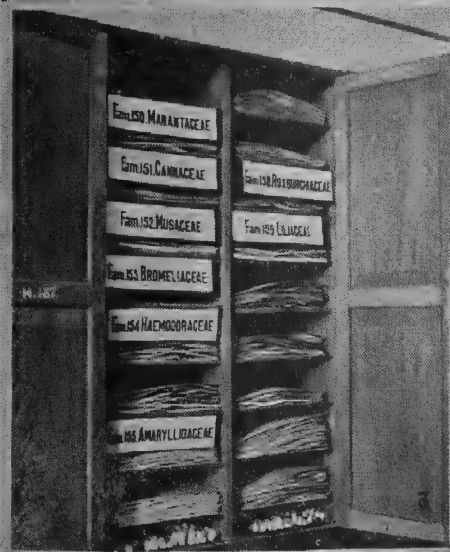 Fam.150.MARANTACEAE
Fam.151.CANNACEAE
Fam.152.MUSACEAE
Fam.153.BROMELIACEAE
Fam.154.HAEMODORACEAE
Fam.155.AMARYLLIDACEAE
Fam.158.ROXBURGHIACEAE
Fam.159.LILIACEAE
3